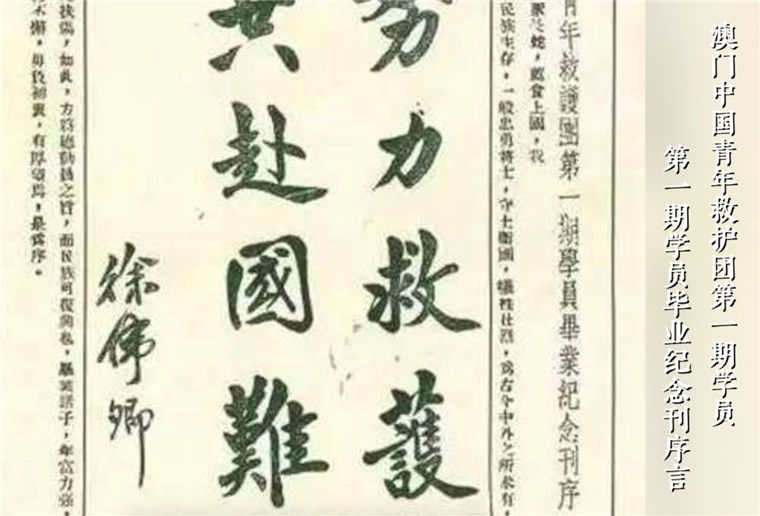 澳门中国青年救护团第一期学员
第一期学员毕业纪念刊序言
青年救護團第一期學員畢業紀念刊序
蛇，薦食上國，我
民族生存，一般忠勇將士，守土衛國，犧牲壯烈，為古今中外之所未有，
努力救護
共赴國難
徐偉卿
扶傷，如此，方為
之旨，而民族可復興也，
子，年富力强，
不懈，毋負初衷，有厚望焉，是為序。